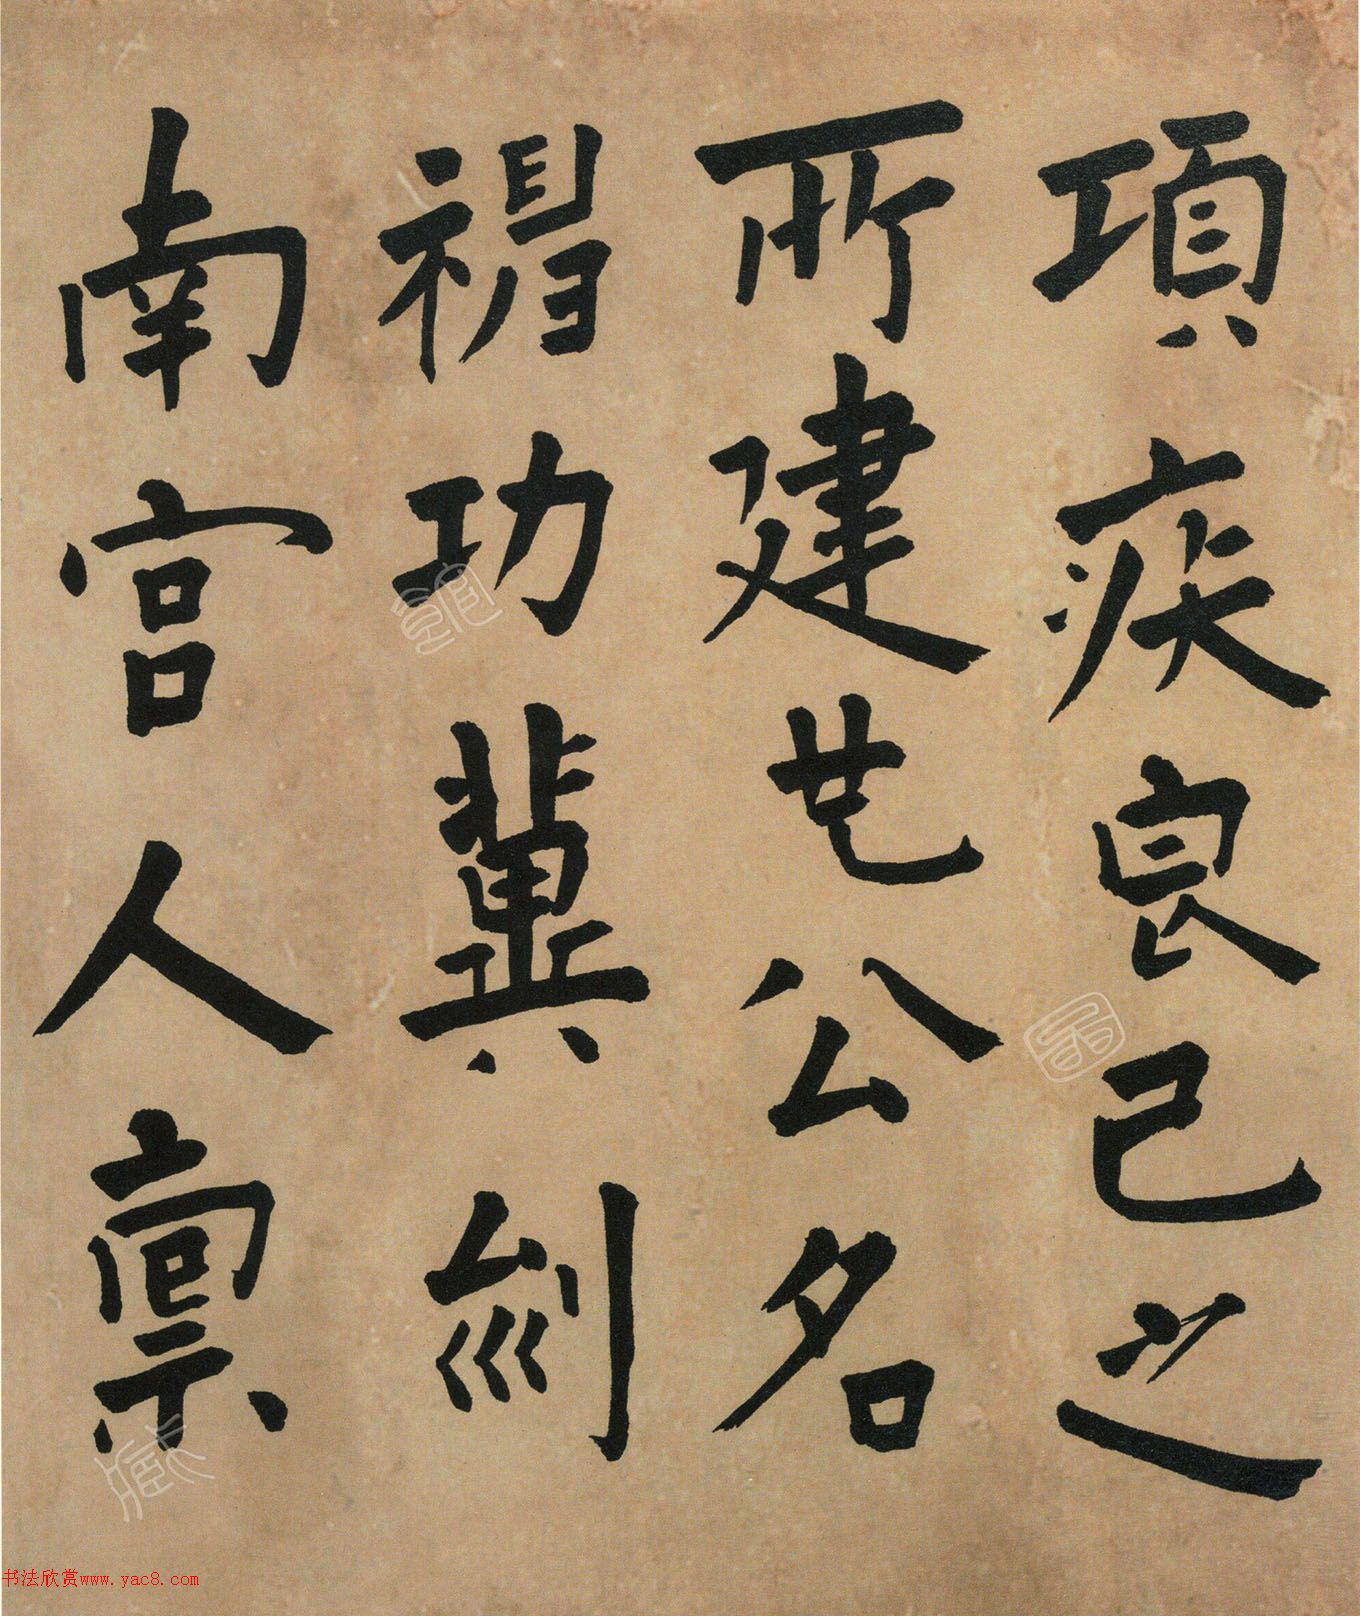 項疾良已之
所建世公名
功冀
南宫人禀
书法欣赏www.yac8.com